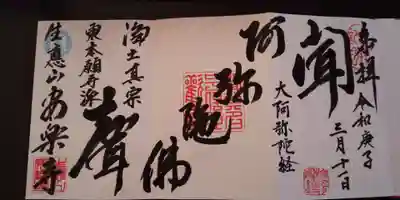 奉拝
令和庚子
三月十一日
聞
大阿弥陀経
阿弥陀佛
聲
浄土真宗
東本願寺派
生恵山安楽寺